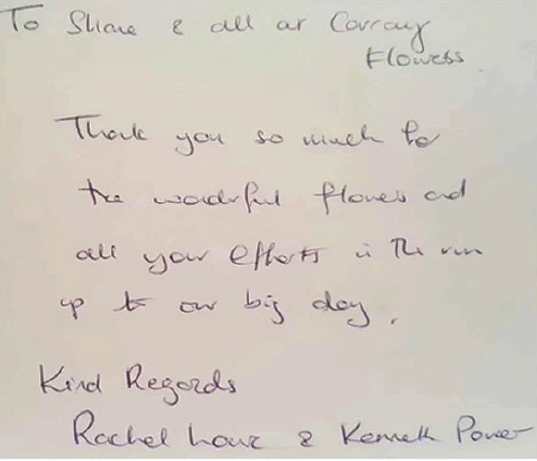 To Shane & all at Corray
Flowers
Thank you so much for
the wonderful flowers and
all your efforts in the run
up to our big day.
Kind Regards
Rachel & Kenneth Power